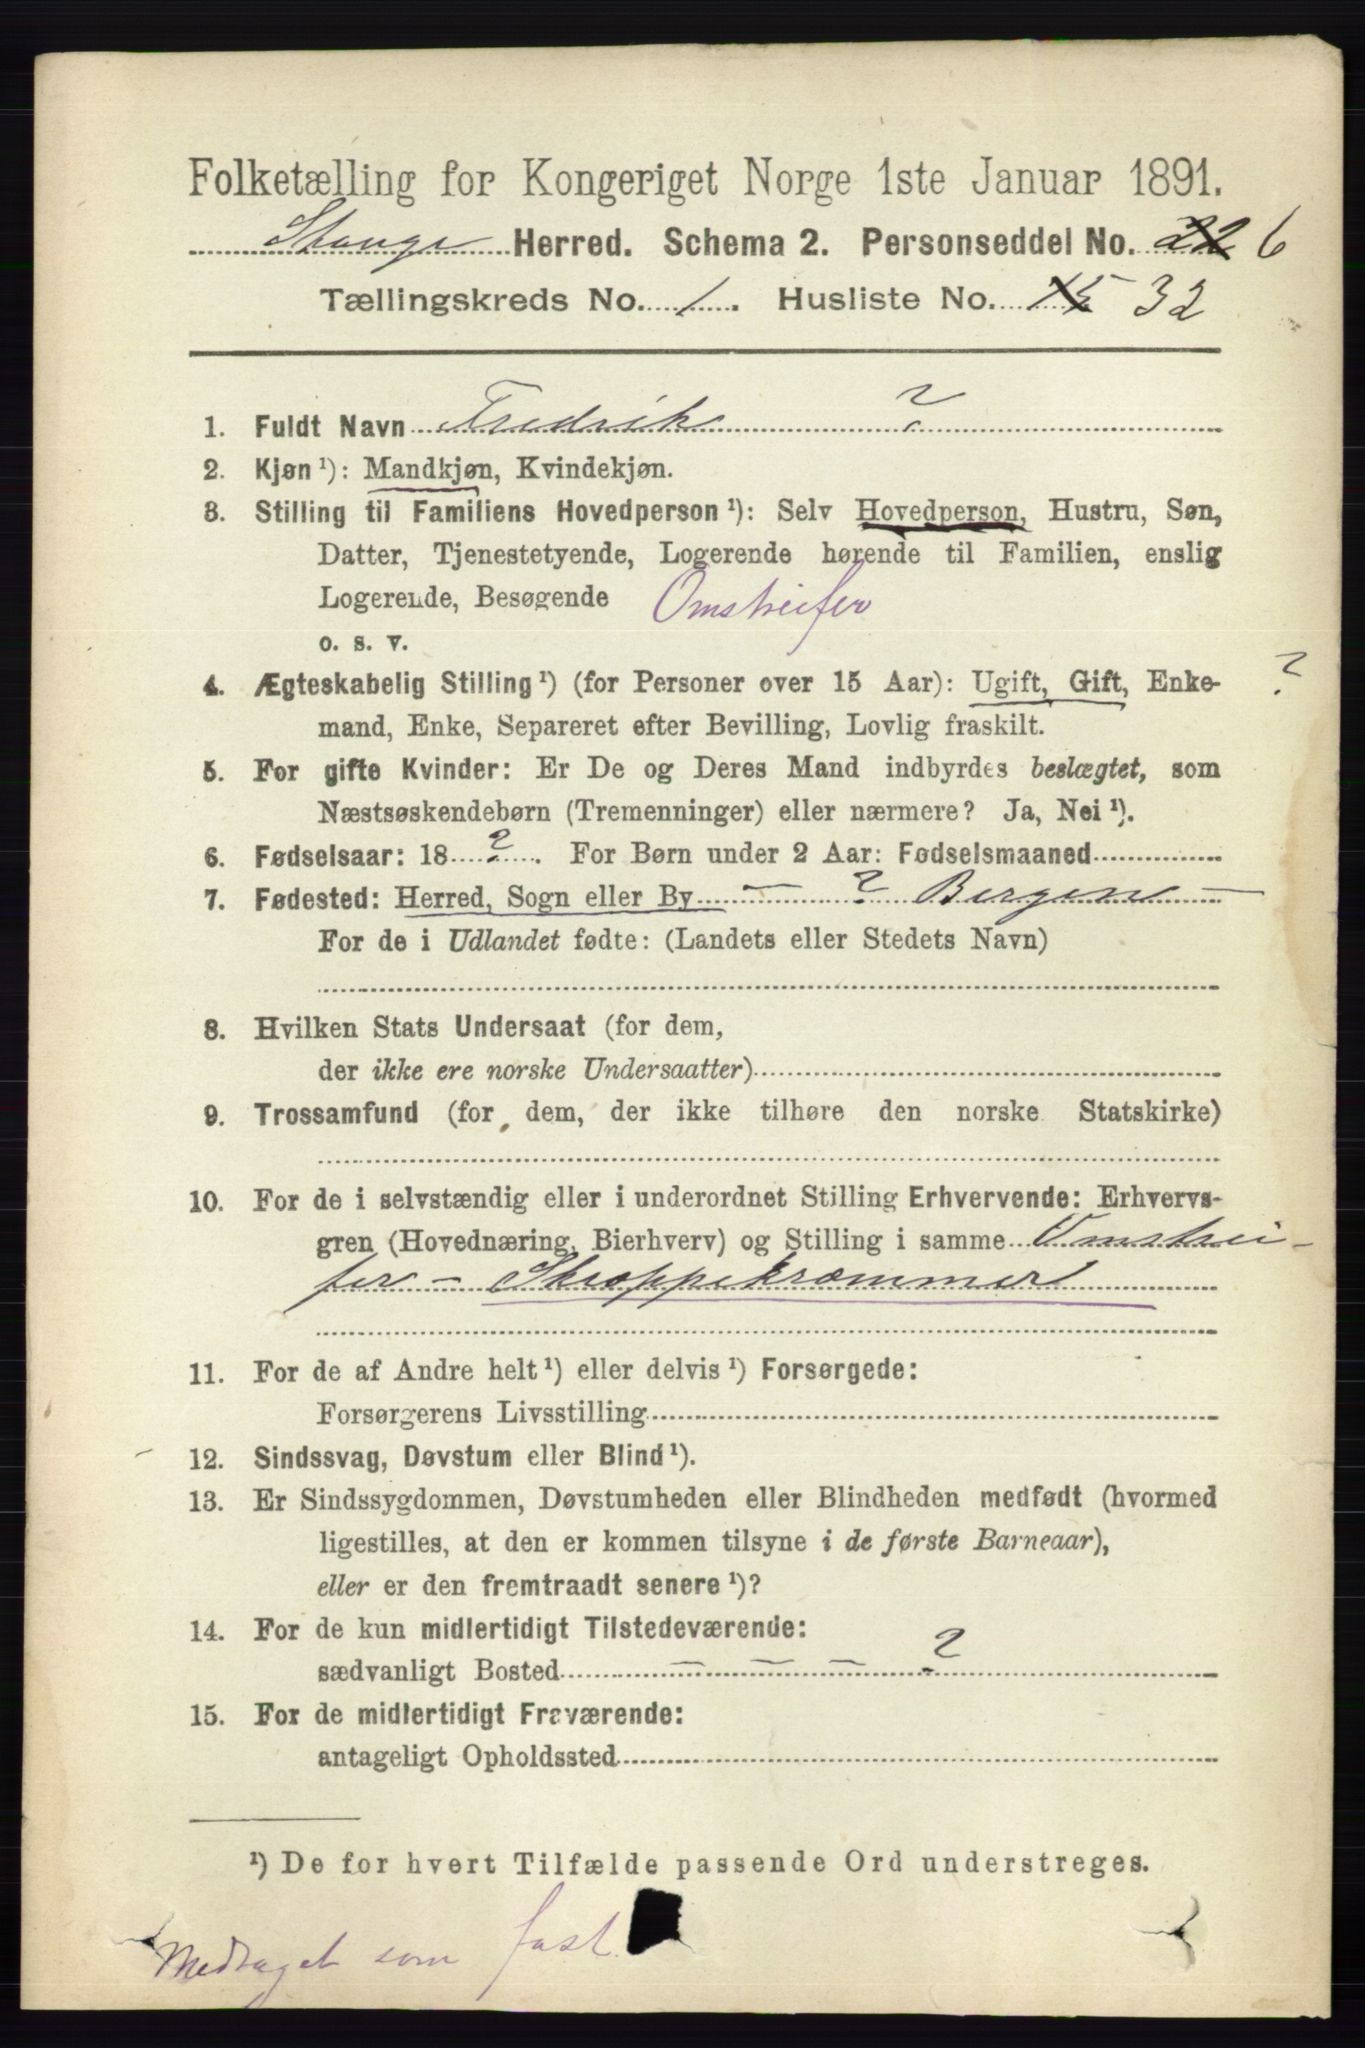 Folketælling for Kongeriget Norge 1ste Januar 1891.
Stange Herred. Schema 2. Personseddel No. 22 6
Tællingskreds No. 1. Husliste No. 15 32
1. Fuldt Navn Fredrik ?
2. Kjøn¹): Mandkjøn, Kvindekjøn.
3. Stilling til Familiens Hovedperson¹): Selv Hovedperson, Hustru, Søn,
Datter, Tjenestetyende, Logerende hørende til Familien, enslig
Logerende, Besøgende Omstreifer
o. s. v.
4. Ægteskabelig Stilling¹) (for Personer over 15 Aar): Ugift, Gift, Enke- ?
mand, Enke, Separeret efter Bevilling, Lovlig fraskilt.
5. For gifte Kvinder: Er De og Deres Mand indbyrdes beslægtet, som
Næstsøskendebørn (Tremenninger) eller nærmere? Ja, Nei¹).
6. Fødselsaar: 18 ? . For Børn under 2 Aar: Fødselsmaaned
7. Fødested: Herred, Sogn eller By – ? Bergen –
For de i Udlandet fødte: (Landets eller Stedets Navn)
8. Hvilken Stats Undersaat (for dem,
der ikke ere norske Undersaatter)
9. Trossamfund (for dem, der ikke tilhøre den norske Statskirke)
10. For de i selvstændig eller i underordnet Stilling Erhvervende: Erhvervs-
gren (Hovednæring, Bierhverv) og Stilling i samme Omstrei-
fer – Skreppekræmmer
11. For de af Andre helt¹) eller delvis¹) Forsørgede:
Forsørgerens Livsstilling
12. Sindssvag, Døvstum eller Blind¹).
13. Er Sindssygdommen, Døvstumheden eller Blindheden medfødt (hvormed
ligestilles, at den er kommen tilsyne i de første Barneaar),
eller er den fremtraadt senere¹)?
14. For de kun midlertidigt Tilstedeværende:
sædvanligt Bosted – – – ?
15. For de midlertidigt Fraværende:
antageligt Opholdssted
¹) De for hvert Tilfælde passende Ord understreges.
Medtaget som fast